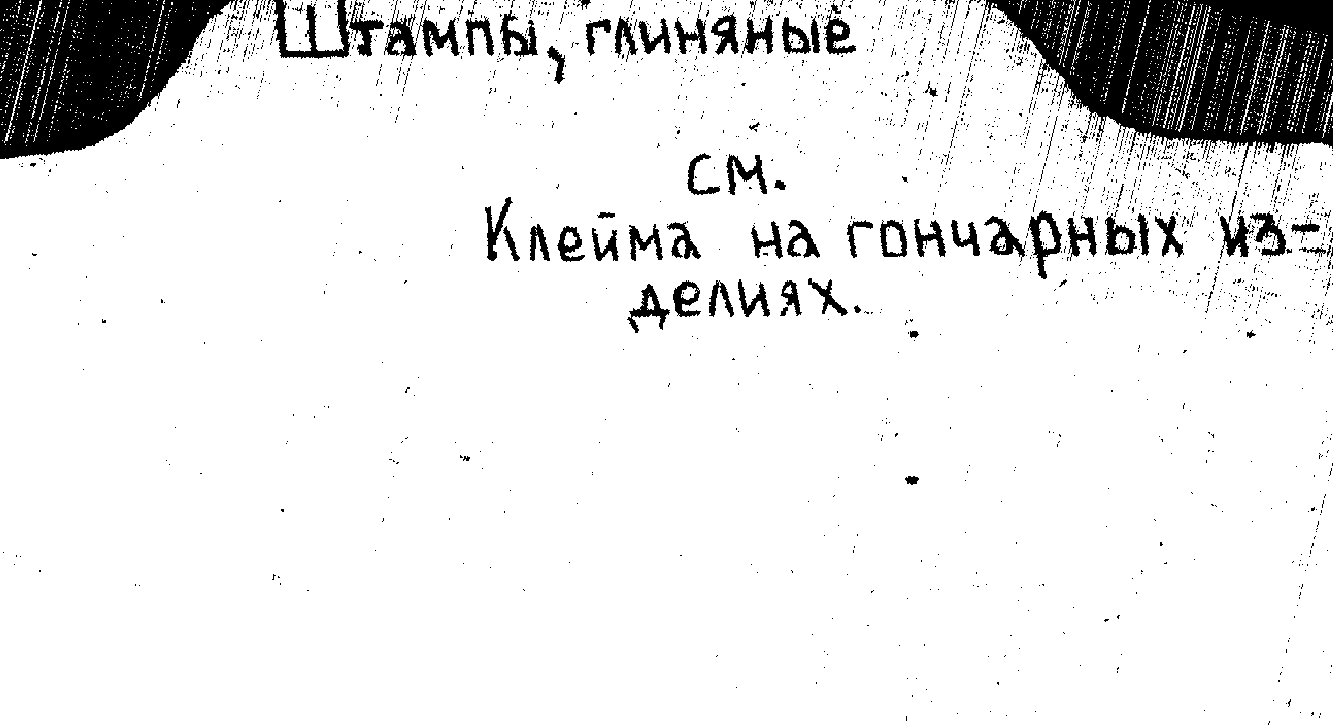 Штампы, глиняные
см.
Клейма на гончарных из-
делиях.